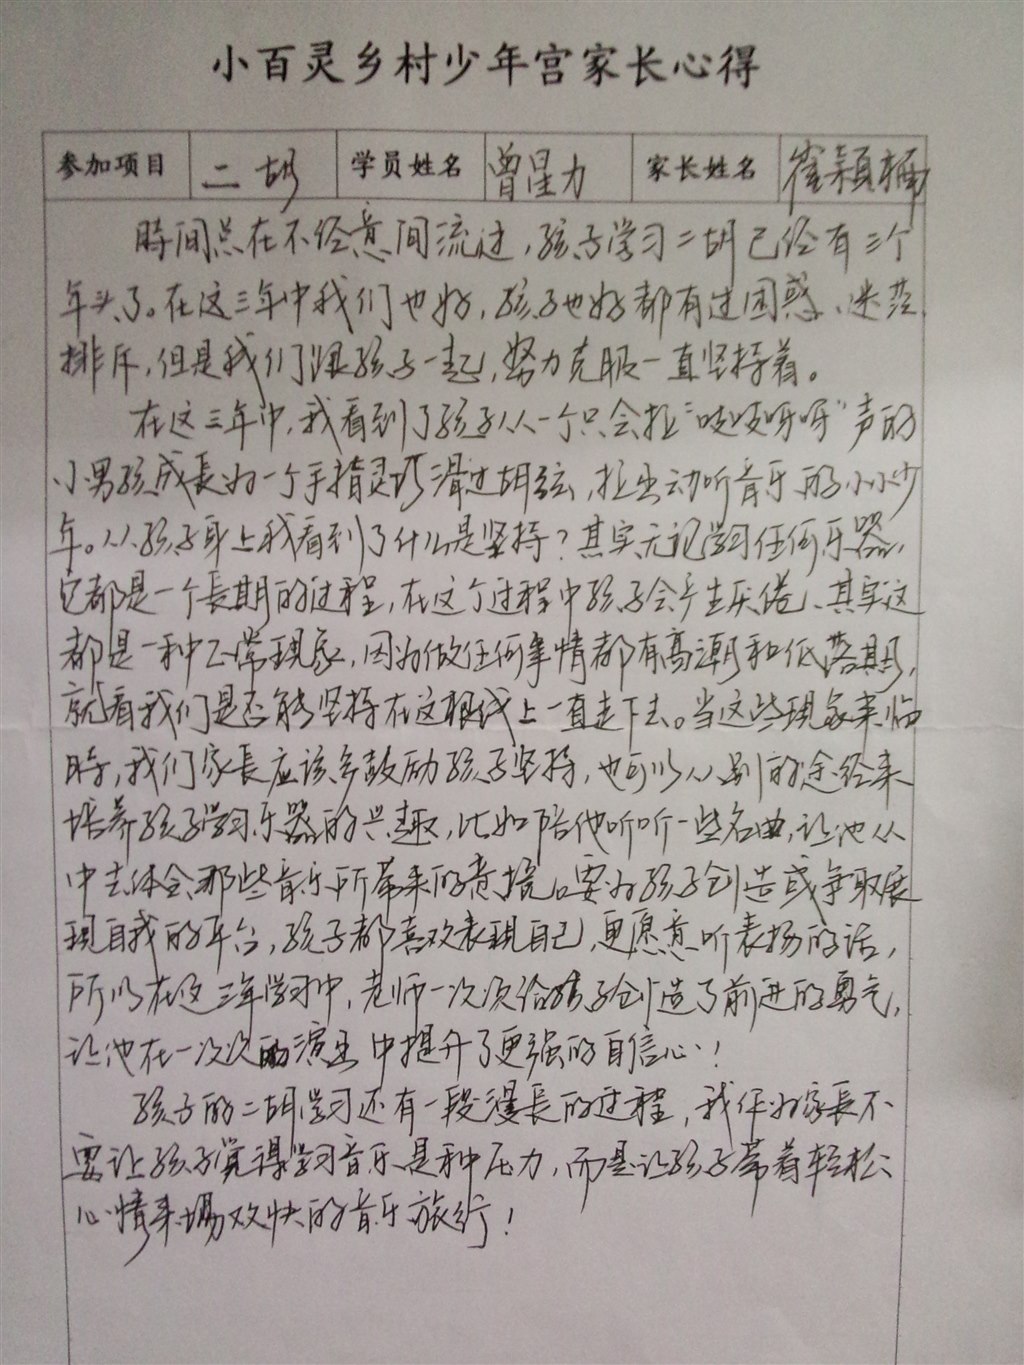 小百灵乡村少年宫家长心得
参加项目 二胡 学员姓名 曾星力 家长姓名 崔颖
時间总在不经意间流过，孩子学习二胡已经有三个
年头了。在这三年中我们也好，孩子也好都有过困惑、迷茫、
排斥，但是我们跟孩子一起，努力克服一直坚持着。
在这三年中，我看到了孩子从一个只会拉“吱吱呀呀”声的
小男孩成長为一个手指灵巧滑过胡弦，拉出动听音乐的小小少
年。从孩子身上我看到了什么是坚持？其实无论学习任何乐器，
它都是一个長期的过程，在这个过程中孩子会产生厌倦、其实这
都是一种正常現象，因为做任何事情都有高潮和低落期，
就看我们是否能坚持在这根线上一直走下去。当这些現象来临
時，我们家長应该多鼓励孩子坚持，也可以从别的途径来
培养孩子学习乐器的兴趣，比如陪他听听一些名曲，让他从
中去体会那些音乐所带来的意境。要为孩子创造或争取展
現自我的平台，孩子都喜欢表現自己，更愿意听表扬的话，
所以在这三年学习中，老师一次次给孩子创造了前进的勇气，
让他在一次次的演出中提升了更强的自信心！
孩子的二胡学习还有一段漫長的过程，我作为家長不
要让孩子觉得学习音乐是种压力，而是让孩子带着轻松
心情来场欢快的音乐旅行！